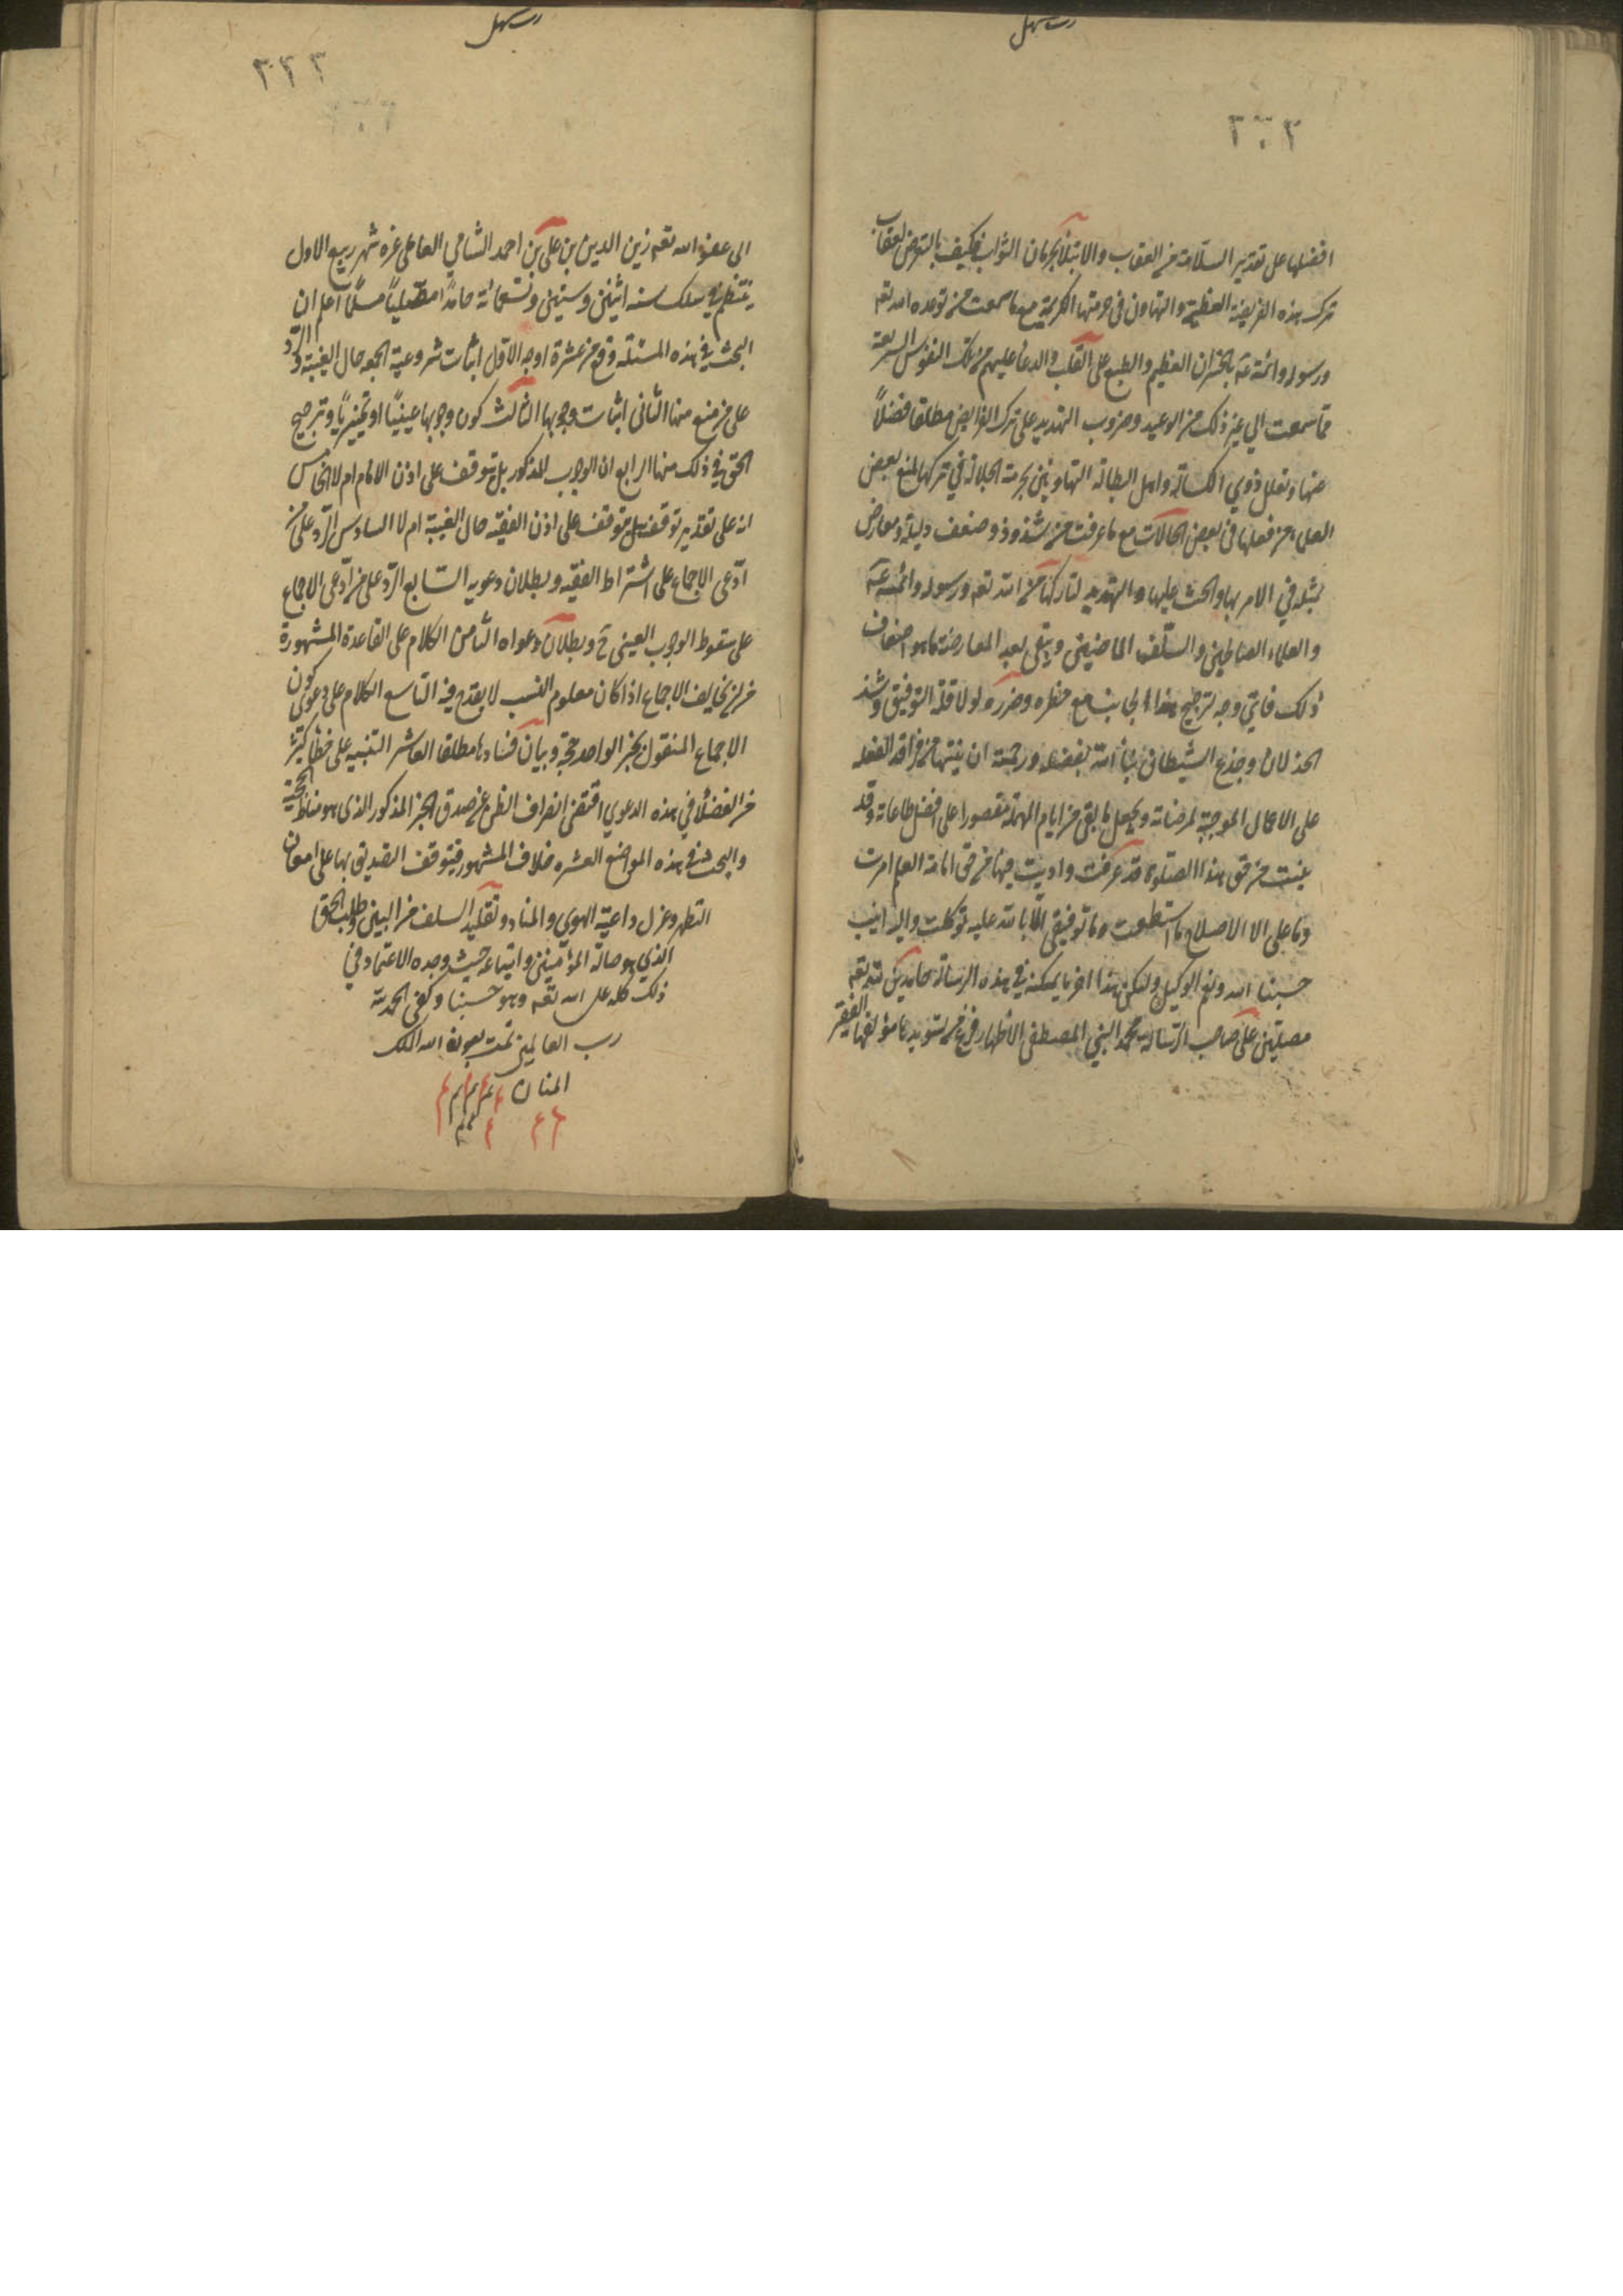 افضلها على تقدير السلامة من العقاب والابتلاء بحرمان الثواب فكيف بالتعرض لعقاب
ترك هذه الفريضة العظيمة والتهاون في حرمتها الكريمة مع ما سمعت من توعده الله تعه
ورسوله وائمته عه بالخسران العظيم والطبع على القلب والدعا عليهم من تلك النفوس الشريعة
مما سمعت الي غير ذلك من الوعيد وضروب التهديد على ترك الفرايض مطلقا فضلاً
عنها وتعلل ذوي الكسالة واهل البطالة المتهاونين بحرمة الجلالة في تركها بمنع بعض
العلماء من فعلها في بعض الحالات مع ما عرفت من شذوذه وضعف دليله ومعارض
بمثله في الامر بها والحث عليها والتهديد لتاركها من الله تعه ورسوله وائمته عه
والعلماء الصالحين والسلف الماضيين ويبقى بعد المعارضة ما هو اضعاف
ذلك فاي وجه لترجيح هذا الجانب مع خطره وضرره لولا قلة التوفيق وشدة
الخذلان وخدع الشيطان نسأ الله بفضله ورحمته ان ينبهنا من مراقد الغفلة
على الاعمال الموجبة لمرضاته ويجعل ما بقي من ايام المهلة مقصورا على افضل طاعاته وقد
بينت من حق هذا الصلوة قد عرفت واديت فيها من حق امانة العلم امرت
وما علي الا الاصلاح ما استطعت وما توفيقي الا بالله عليه توكلت واليه انيب
حسبنا الله ونعم الوكيل وليكن هذا اخر ما يمكنه في هذه الرسالة حامدين لله تعه
مصلين على صاحب الرسالة محمد النبي المصطفى الاطهار فرغ من تسويدها مؤلفها الفقير
الى عفو الله تعه زين الدين بن علي بن احمد الشامي العاملي غره شهر ربيع الاول
ينتظم في سلك سنه اثنين وستين وتسعمائة حامداً مصلياً مسلماً اعلم ان
البحث في هذه المسئلة وقع من عشرة اوجه الاول اثبات شروعية الجمعه حال الغيبة والرد
على من منع منها الثاني اثبات وجوبها الثالث كون وجوبها عينياً او تخييرياً وترجيح
الحق في ذلك منها الرابع ان الوجوب المذكور بل توقف على اذن الامام ام لا الخامس
انه على تقدير توقف هل يتوقف على اذن الفقيه حال الغيبة ام لا السادس الرد على من
ادعى الاجماع على اشتراط الفقيه وبطلان دعويه السابع الرد على من ادعى الاجماع
على سقوط الوجوب العيني ح وبطلان دعواه الثامن الكلام على القاعدة المشهورة
من ان مخالف الاجماع اذا كان معلوم النسب لا يقدح فيه التاسع الكلام على دعوى كون
الاجماع المنقول بخبر الواحد حجة وبيان فسادها مطلقا العاشر التنبيه على خطأ كثير
من الفضلاء في هذه الدعوي اقتضى انصراف الظن عن صدق الخبر المذكور الذي هو مناط الحجية
والبحث في هذه المواضع العشره خلاف المشهور فيتوقف التصديق بها على امعان
النظر وعزل داعية الهوي والعناد وتقليد السلف من البين وطلب الحق
الذي هو ضالة المؤمنين واتباعه حيث وجده الاعتماد في
ذلك كله على الله تعه وهو حسبنا وكفى الحمد لله
رب العالمين تمت بعونة الله الملك
المنان